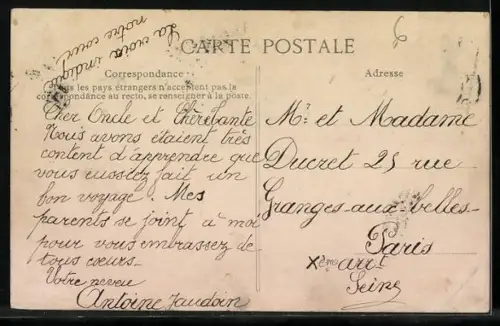 La voix indique
notre cour.
CARTE POSTALE
Correspondance
Tous les pays étrangers n'acceptent pas la
correspondance au recto, se renseigner à la poste.
Cher Oncle et Chère tante
Nous avons étaient très
content d'apprendre que
vous eussiez fait un
bon voyage. Mes
parents se joint à moi
pour vous embrassez de
tous cœurs.
Votre neveu
Antoine Jaudoin
Adresse
Mr et Madame
Ducret 25 rue
Granges-aux-belles-
Paris
Xème arrt
Seine
6